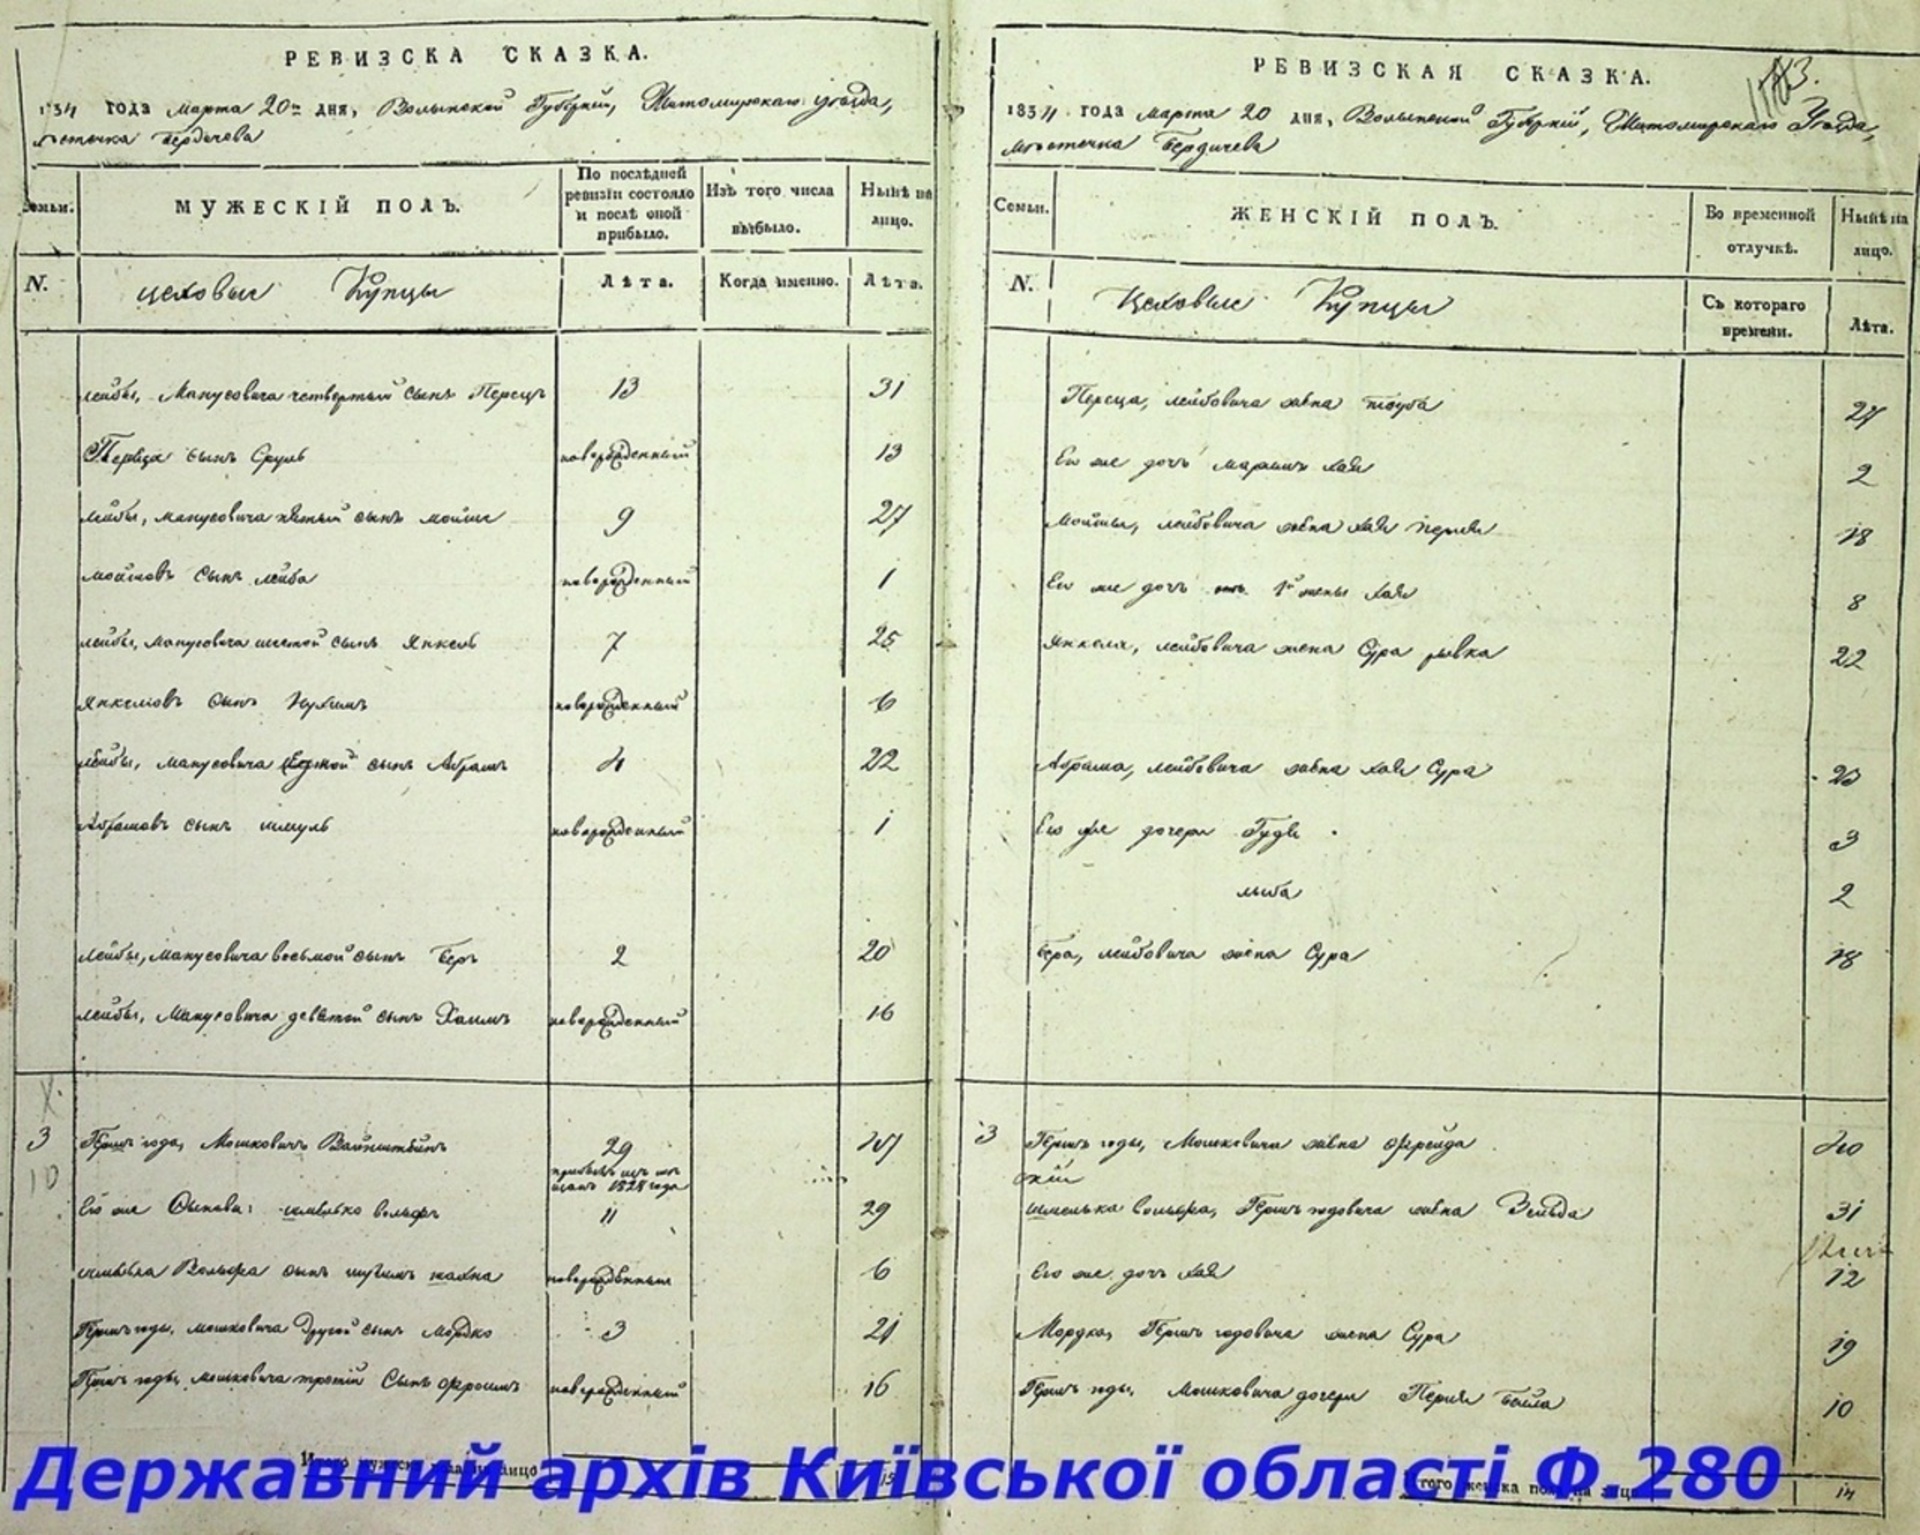 РЕВИЗСКА СКАЗКА.
1834 года марта 20го дня, Волынской Губерніи, Житомирскаго уѣзда,
мѣстечка Бердичева
Семьи.
МУЖЕСКІЙ ПОЛЪ.
По послѣдней ревизіи состояло и послѣ оной прибыло.
Изъ того числа выбыло.
Нынѣ на лицо.
N.
цеховые Купцы
Лѣта.
Когда именно.
Лѣта.
лейбы, Манусовича четвертый сынъ Перецъ 13 31
Переца сынъ Сруль новорожденный 13
лейбы, манусовича пятый сынъ мойше 9 27
мойшовъ сынъ лейба новорожденный 1
лейбы, манусовича шестой сынъ Янкель 7 25
Янкелювъ сынъ Нухимъ новорожденный 6
лейбы, манусовича седмой сынъ Абрамъ 4 22
Абрамовъ сынъ шмуль новорожденный 1
лейбы, манусовича восьмой сынъ Беръ 2 20
лейбы, Манусовича девятой сынъ Хаимъ новорожденный 16
3 Гершъ года, Мошковичъ Вайнштейнъ 29
прибылъ изъ
1828 года
10
Его же Сынова: шмелько вольфъ 11 29
шмелька Вольфа сынъ нахна новорожденный 6
Гершъ годы, мошковича другой сынъ Мордко 3 21
Гершъ годы, мошковича третій Сынъ Фроимъ новорожденный 16
Итого мужеска пола на лицо 15
РЕВИЗСКАЯ СКАЗКА.
183.
1834 года марта 20 дня, Волынской Губерніи, Житомирскаго Уѣзда,
мѣстечка Бердичева
Семьи.
ЖЕНСКІЙ ПОЛЪ.
Во временной отлучкѣ.
Нынѣ на лицо.
N.
Цеховые Купцы
Съ котораго времени.
Лѣта.
Переца, лейбовича жена тоуба 27
Его же дочь маріимъ хая 2
Мойши, лейбовича жена хая перля 18
Его же дочь отъ 1й жены хая 8
Янкеля, лейбовича жена Сура ривка 22
Абрама, лейбовича жена хая Сура 23
Его же дочери Гудя 3
лыба 2
Бера, лейбовича жена Сура 18
3 Гершъ годы, Мошковича жена Фрейда 40
шмелька вольфа, Гершъ годовича жена Зельда 31
Его же дочь хая 12
Мордка, Гершъ годовича жена Сура 19
Гершъ годы, Мошковича дочери Перля Бейла 10
Итого женска пола на лицо 14
Державний архів Київської області Ф.280